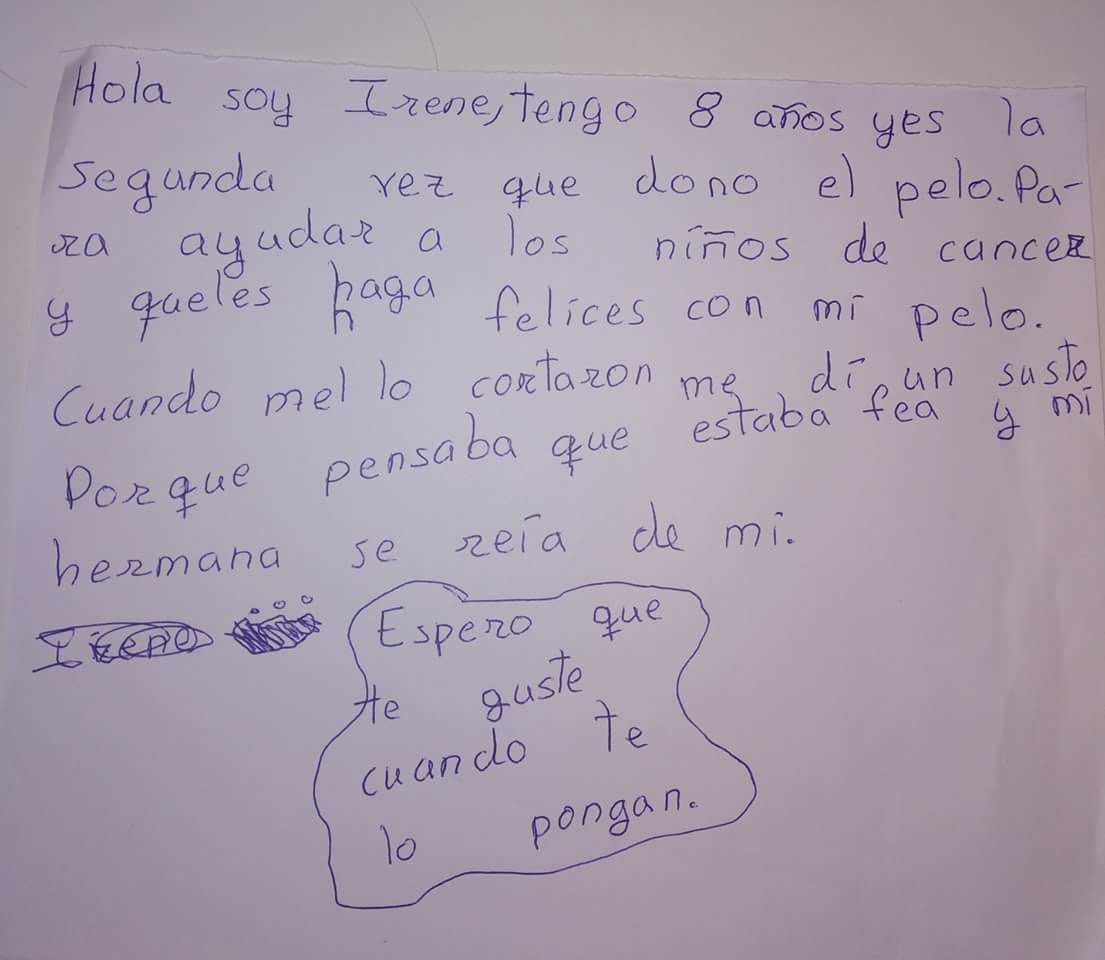 Hola soy Irene, tengo 8 años yes la
segunda vez que dono el pelo. Pa-
ra ayudar a los niños de cancer
y queles haga felices con mi pelo.
Cuando mel lo cortaron me di un susto
Porque pensaba que estaba fea y mi
hermana se reía de mi.
Irene
Espero que
te guste
cuando te
lo pongan.